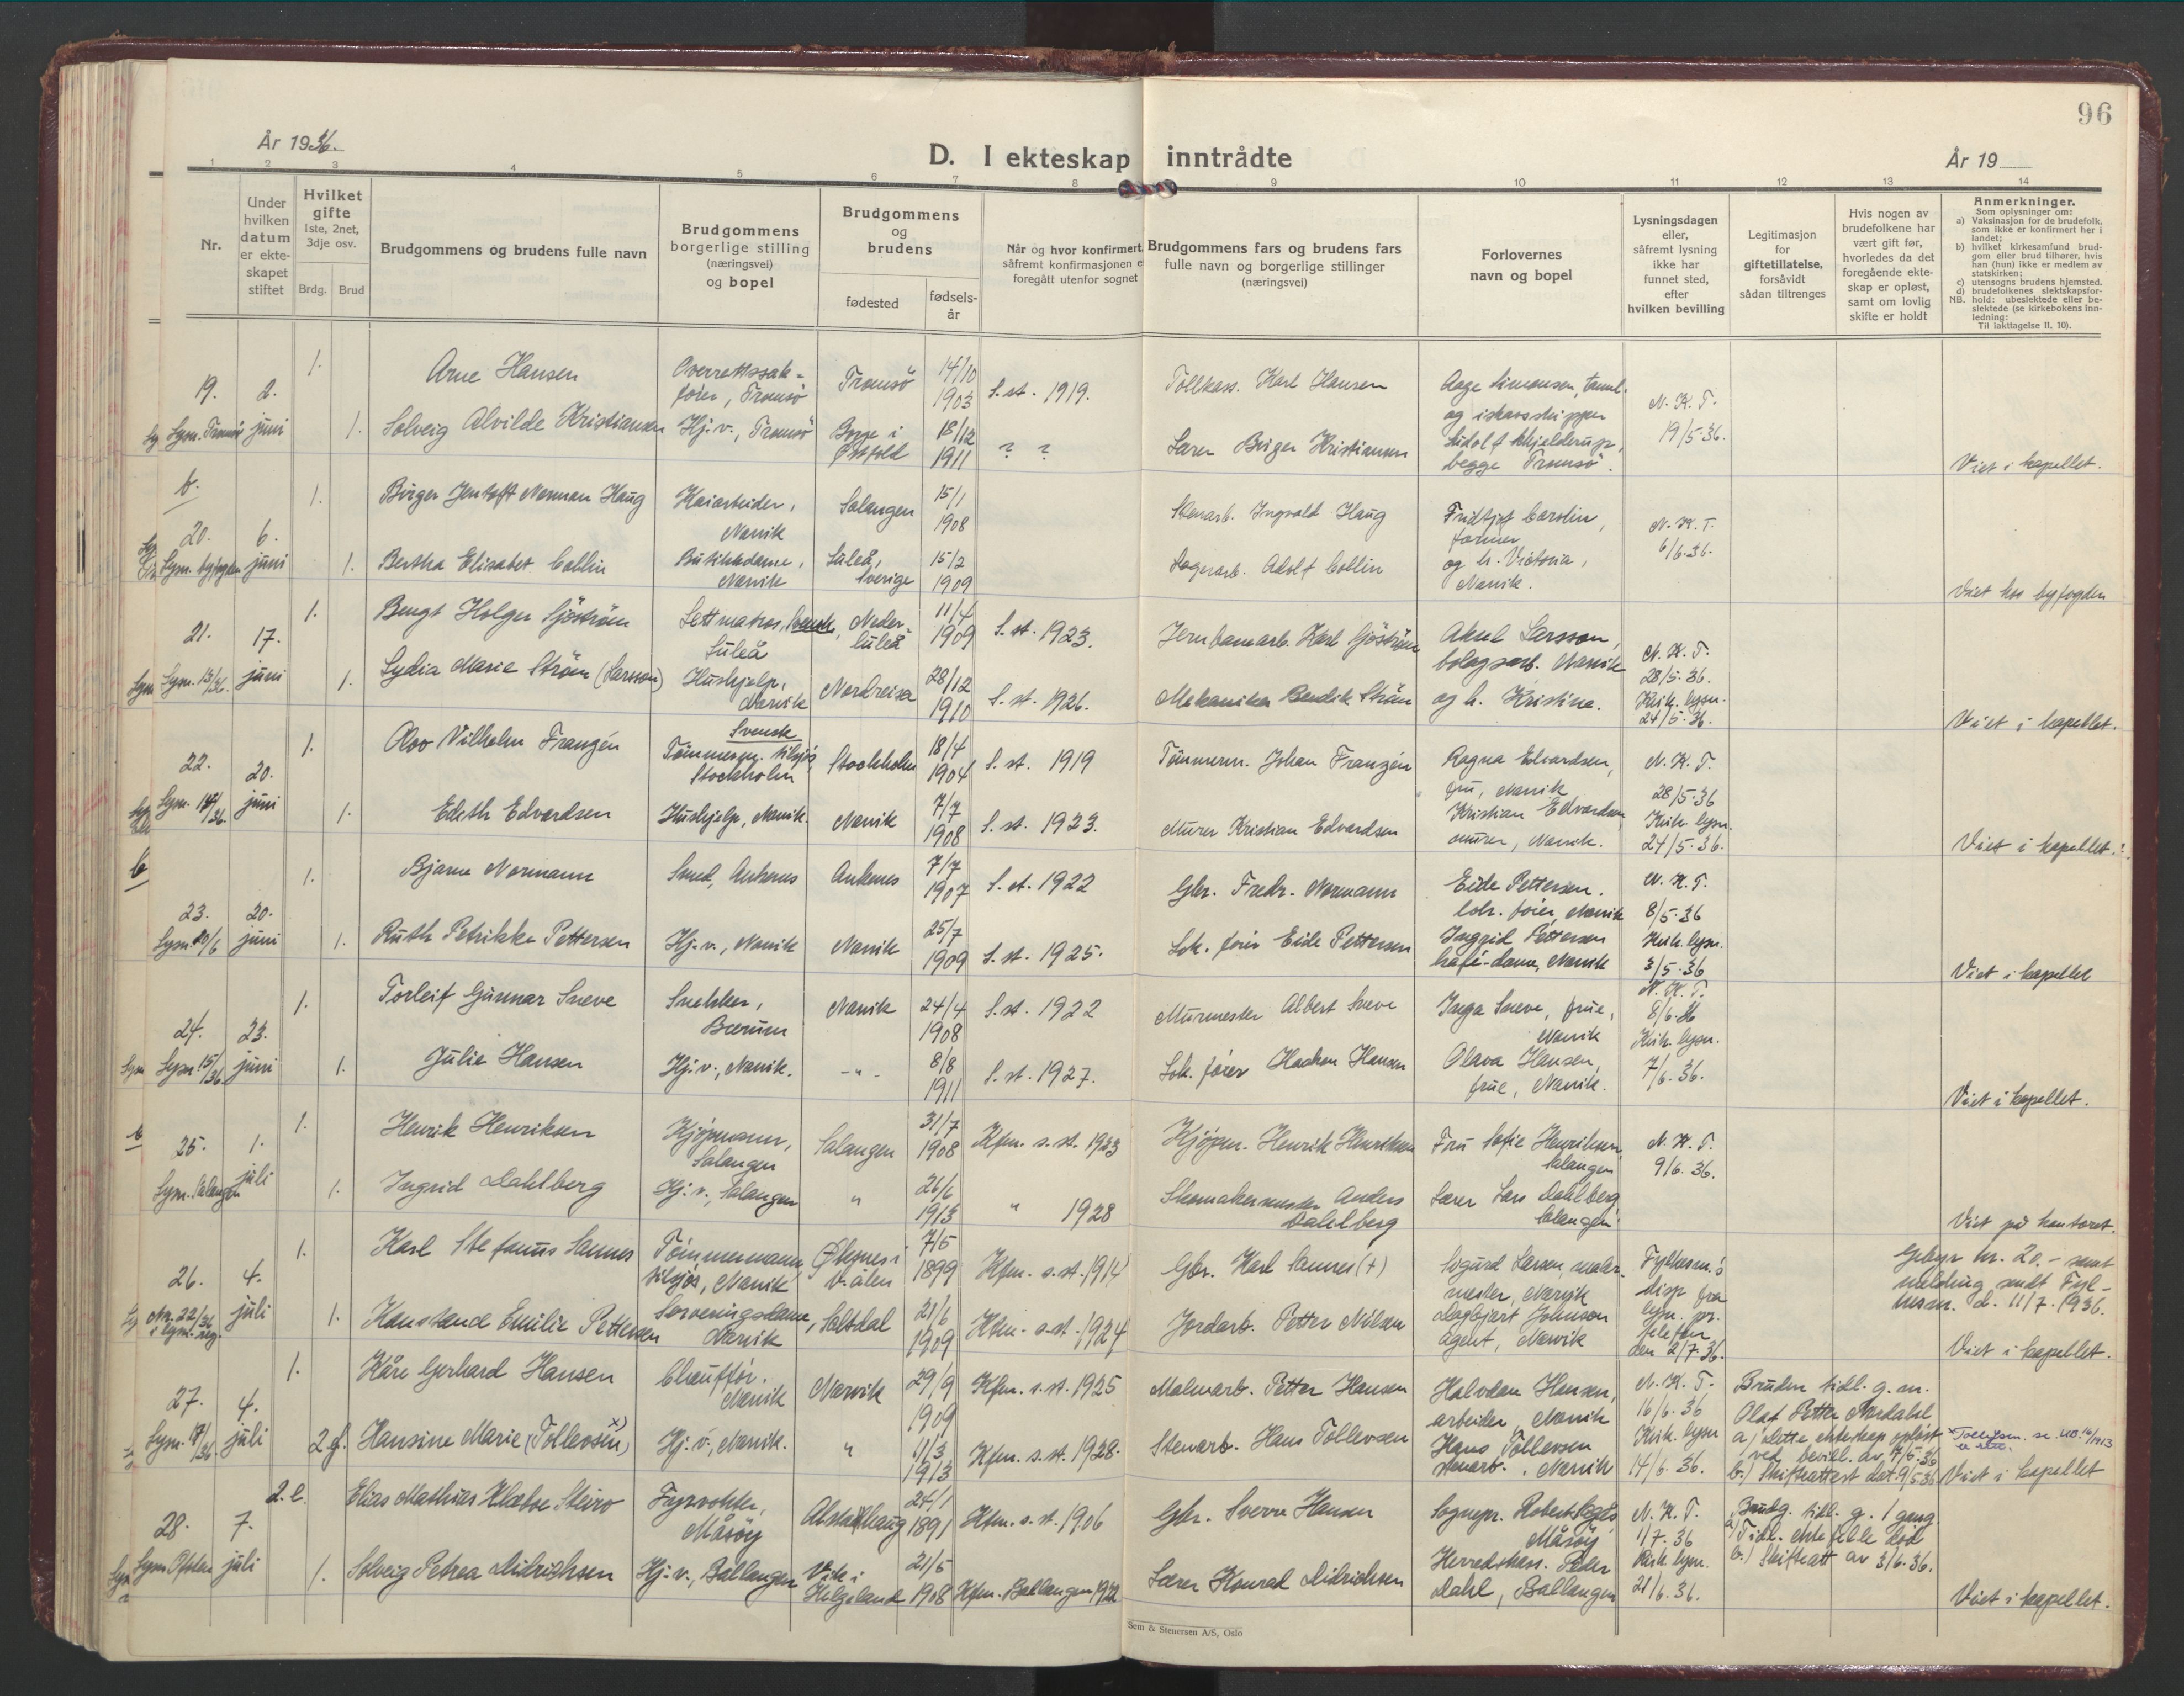 96
År 1936.
D. I ekteskap inntrådte
År 19
1 2 3 4 5 6 7 8 9 10 11 12 13 14
Nr.
Under hvilken datum er ekte-skapet stiftet
Hvilket gifte
1ste, 2net, 3dje osv.
Brdg. Brud
Brudgommens og brudens fulle navn
Brudgommens borgerlige stilling (næringsvei) og bopel
Brudgommens og brudens
fødested
fødsels-år
Når og hvor konfirmert,
såfremt konfirmasjonen e
foregått utenfor sognet
Brudgommens fars og brudens fars
fulle navn og borgerlige stillinger
(næringsvei)
Forlovernes
navn og bopel
Lysningsdagen
eller,
såfremt lysning
ikke har
funnet sted,
efter
hvilken bevilling
Legitimasjon
for
giftetillatelse,
forsåvidt
sådan tiltrenges
Hvis nogen av
brudefolkene har
vært gift før,
hvorledes da det
foregående ekte-
skap er opløst,
samt om lovlig
skifte er holdt
Anmerkninger.
Som oplysninger om:
a) Vaksinasjon for de brudefolk,
som ikke er konfirmert her i
landet;
b) hvilket kirkesamfund brud-
gom eller brud tilhører, hvis
han (hun) ikke er medlem av
statskirken;
c) utensogns brudens hjemsted.
d) brudefolkenes slektskapsfor-
NB. hold: ubeslektede eller be-
slektede (se kirkebokens inn-
ledning:
Til iakttagelse II, 10).
19. 2. juni
Lysn. Tromsø
1. Arne Hansen
Overrettssak-
fører, Tromsö
Tromsö
14/10
1903
S. st. 1919.
Tollkass. Karl Hansen
Aage Simonsen, tannl.
og ishavsskipper
N. K. T.
19/5-36.
1. Solveig Alvilde Kristiansen
Hj. v., Tromsö
Borge i
Østfold
18/12
1911
? ?
Lærer Birger Kristiansen
begge Tromsö.
Viet i kapellet.
b.
20. 6. juni
Lysn. byfogden
1. Birger Jentoft Norman Haug
Kaiarbeider,
Narvik
Salangen
15/1
1908
Stenarb. Ingvald Haug
Fridtjof Carolin,
former
N. K. T.
6/6-36.
1. Bertha Elisabet Collin
Butikkdame,
Narvik
Luleå,
Sverige
15/2
1909
Lagerarb. Adolf Collin
og h. Victoria,
Narvik.
Viet hos byfogden
21. 17. juni
Lysn. 13/36.
1. Bengt Holger Sjöström
Lettmatros, Svensk,
Luleå
Neder-
luleå
11/4
1909
S. st. 1923.
Jernbanearb. Karl Sjöström
Aksel Larsson,
bolagsarb. Narvik
N. K. T.
28/5-36.
1. Lydia Marie Ström (Larsson)
Hushjelp,
Narvik
Nordreisa
28/12
1910
S. st. 1926.
Mekaniker Bendik Ström
og h. Kristine.
Kirk. lysn.
24/5-36.
Viet i kapellet.
22. 20. juni
Lysn. 14/36.
1. Olov Vilhelm Franzén
Svensk
Tömmerm. tilsjøs,
Stockholm
Stockholm
18/4
1904
S. st. 1919
Tömmerm. Johan Franzén
Ragna Edvardsen,
fru, Narvik
N. K. T.
28/5-36
1. Edith Edvardsen
Hushjelp, Narvik.
Narvik
7/7
1908
S. st. 1923.
Murer Kristian Edvardsen
Kristian Edvardsen
murer, Narvik.
Kirk. lysn.
24/5-36.
Viet i kapellet.
b
23. 20. juni
Lysn. 20/6
1. Bjarne Normann
Smed, Ankenes
Ankenes
7/7
1907
S. st. 1922
Gbr. Fredr. Normann
Eide Pettersen.
lok. fører, Narvik
N. K. T.
8/5-36
1. Ruth Petrikke Pettersen
Hj. v., Narvik
Narvik
25/7
1909
S. st. 1925.
Lok. fører Eide Pettersen
Ingrid Pettersen
kafé-dame, Narvik
Kirk. lysn.
3/5-36
Viet i kapellet
24. 23. juni
Lysn. 15/36
1. Torleif Gunnar Sneve
Snekker,
Bærum
Narvik
24/4
1908
S. st. 1922
Murmester Albert Sneve
Inga Sneve, frue,
Narvik
N. K. T.
8/6-36
1. Julie Hansen
Hj. v., Narvik.
-"-
8/8
1911
S. st. 1927.
Lok. fører Haakon Hansen
Olava Hansen,
frue, Narvik.
Kirk. lysn.
7/6-36.
Viet i kapellet.
25. 1. juli
Lysn. Salangen
1. Henrik Henriksen
Kjöpmann,
Salangen
Salangen
31/7
1908
Kfm. s. st. 1923
Kjöpm. Henrik Henriksen
Fru Sofie Henriksen,
Salangen
N. K. T.
9/6-36.
1. Ingrid Dahlberg
Hj. v., Salangen
"
26/6
1913
" 1928
Skomakermester Anders
Dahlberg
Lærer Lars Dahlberg
Salangen
Viet på kontoret.
26. 4. juli
Nr. 22/36
i lysn. reg.
1. Karl Stefanus Sannes
Tömmermann
tilsjøs, Narvik
Øksnes i
V. ålen
7/5
1899
Kfm. s. st. 1914
Gbr. Karl Sannes (+)
Sigurd Larsen, maler-
mester, Narvik
Fylkesm.s
disp. fra
lysn. pr.
telefon
den 2/7-36.
Gebyr kr. 20.- samt
melding sendt Fyl-
kesm. d. 11/7-1936.
1. Konstance Emilie Pettersen
Serveringsdame,
Narvik
Saltdal
21/6
1909
Kfm. s. st. 1924
Jordarb. Petter Nilsen
Dagbjart Johnson
agent, Narvik
Viet i kapellet.
27. 4. juli
Lysn. 17/36.
1. Kåre Gerhard Hansen
Chauffør.
Narvik
Narvik
29/9
1909
Kfm. s. st. 1925
Malmarb. Petter Hansen
Halvdan Hansen,
arbeider, Narvik
N. K. T.
16/6-36
Bruden tidl. g. m.
Olaf Petter Nordahl
a/ Dette ekteskap opløst
ved bevill. av 14/5-36
b./ Skifteattest dat. 9/5-36
2. gf. Hansine Marie (Tollevsen x)
Hj. v., Narvik.
"
11/3
1913
Kfm. s. st. 1928.
Stenarb. Hans Tollevsen
Hans Tollevsen
stenarb., Narvik
Kirk. lysn
14/6-36.
Viet i kapellet
28. 7. juli
2. e. Elias Mathias Klæboe Steiro
Fyrvokter,
Måsöy
Alstadhaug
24/1
1891
Kfm. s. st. 1906
Gbr. Sverre Hansen
Sognepr. Robert
Måsöy
N. K. T.
1/7-36
Brudg. tidl. g. 1 gang.
a/ Tidl. ektefelle död
b./ Skifteatt av 3/6-36.
1. Solveig Petrea Didrichsen
Hj. v., Ballangen
Vik i
Helgeland
21/5
1908
Kfm. Ballangen 1922
Lærer Konrad Didrichsen
Herredskass. Peder
Dahl, Ballangen
Kirk. lysn.
21/6-36.
Viet i kapellet.
Sem & Stenersen A/S, Oslo